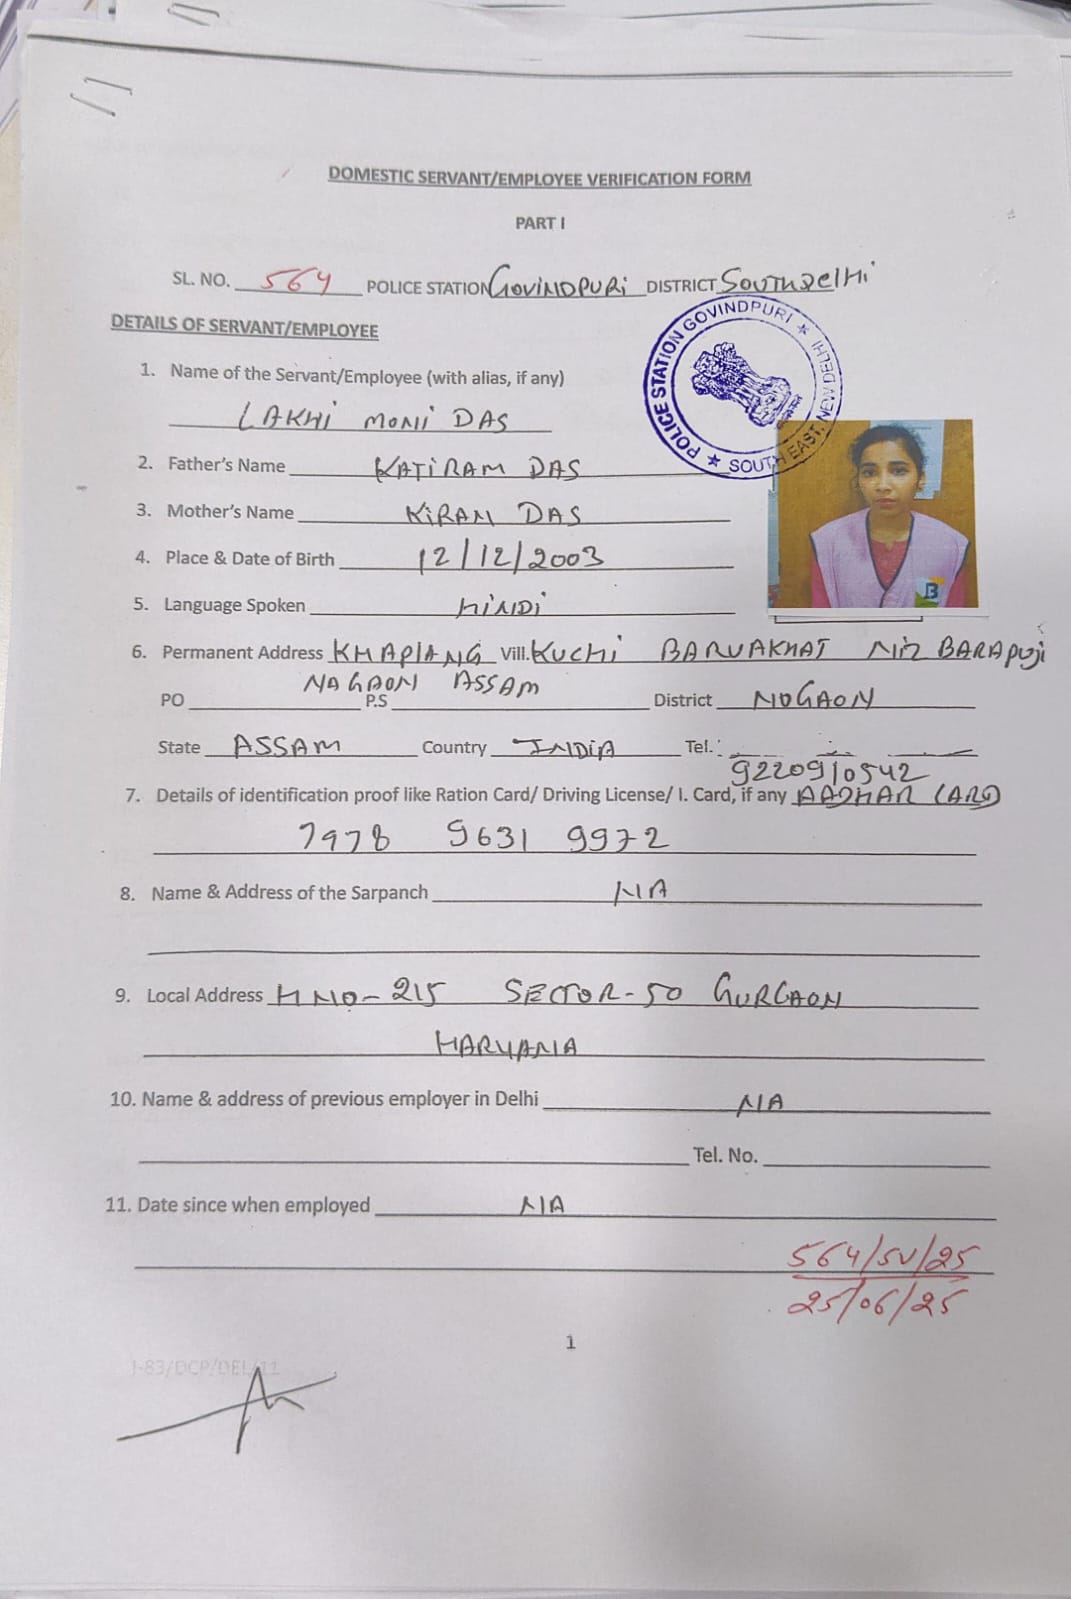 DOMESTIC SERVANT/EMPLOYEE VERIFICATION FORM
PART I
SL. NO. 564 POLICE STATION GOVINDPURI DISTRICT SOUTH DELHI
POLICE STATION GOVINDPURI ★ SOUTH EAST, NEW DELHI ★
DETAILS OF SERVANT/EMPLOYEE
1. Name of the Servant/Employee (with alias, if any)
LAKHI MONI DAS
2. Father's Name KATIRAM DAS
3. Mother's Name KIRAN DAS
4. Place & Date of Birth 12/12/2003
5. Language Spoken HINDI
B
6. Permanent Address KHAPIANG Vill. KUCHI BARUAKHAT NIZ BARAPUJI
NAGAON ASSAM
PO P.S District NOGAON
State ASSAM Country INDIA Tel.
9220910542
7. Details of identification proof like Ration Card/ Driving License/ I. Card, if any AADHAR CARD
7978 9631 9972
8. Name & Address of the Sarpanch NA
9. Local Address H NO-215 SECTOR-50 GURGAON
HARYANA
10. Name & address of previous employer in Delhi NA
Tel. No.
11. Date since when employed NA
564/SV/25
25/06/25
1
J-83/DCP/DEL/11